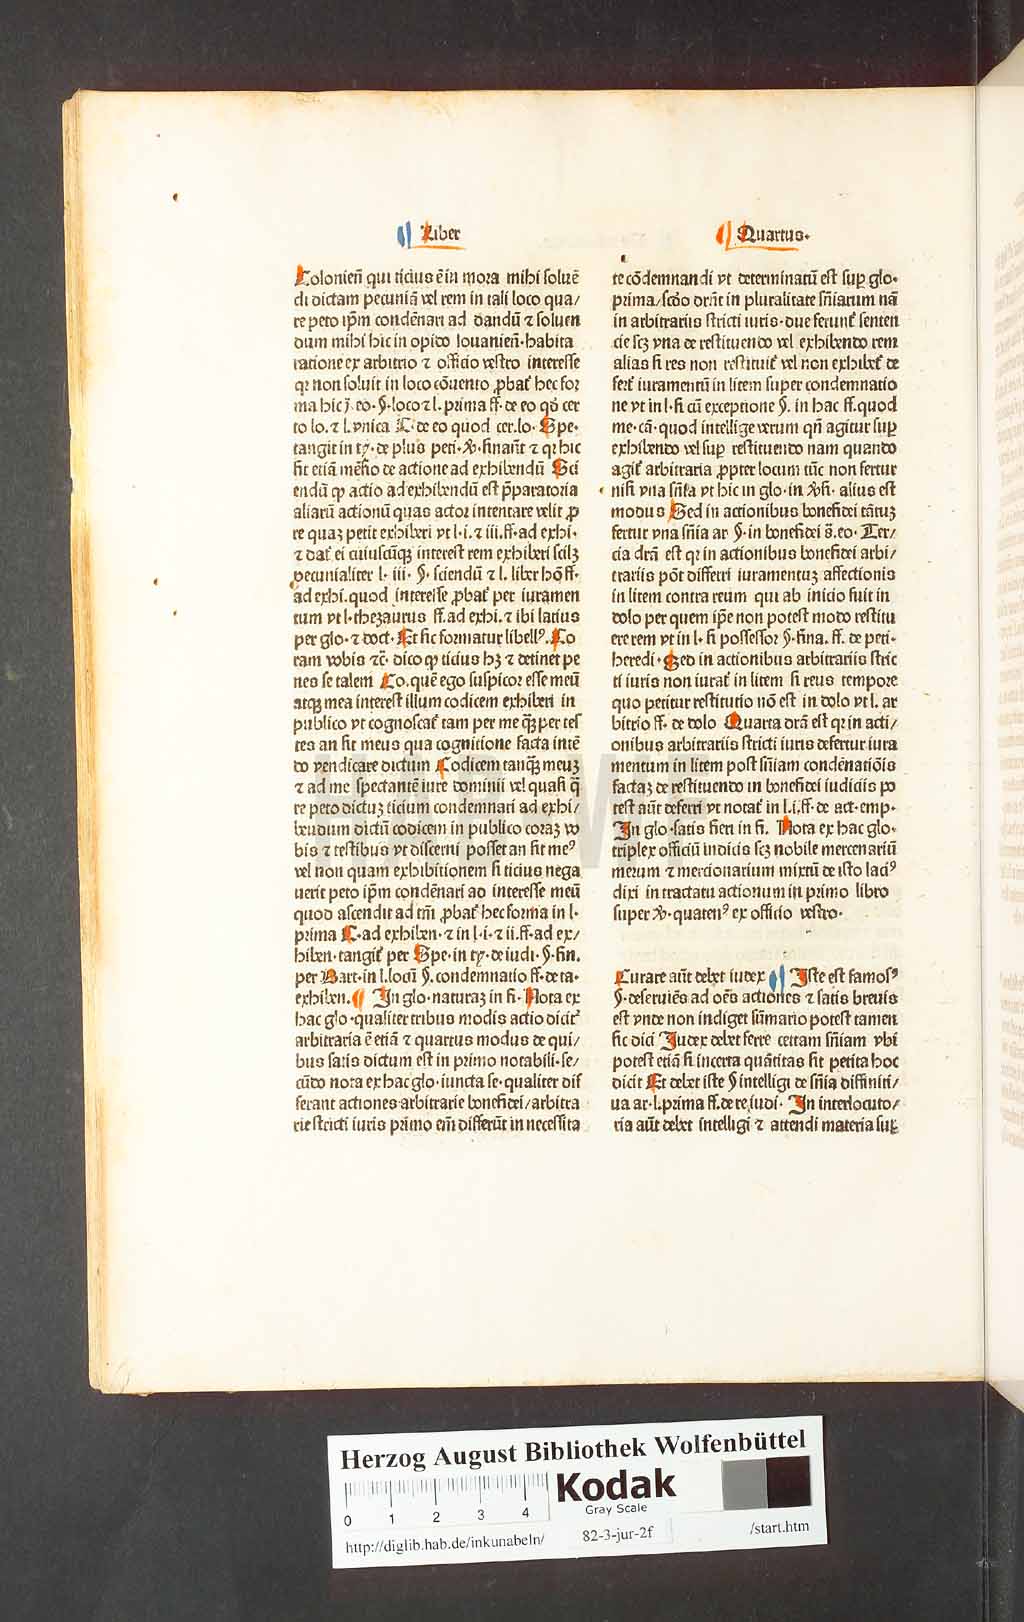 Liber
Quartus.
Colonień qui ticius ē in mora mihi soluē
di dictam pecuniā vel rem in tali loco qua/
re peto ip̄m condēnari ad dandū ⁊ soluen
dum mihi hic in opido louanień·habita
ratione ex arbitrio ⁊ officio vestro interesse
qr non soluit in loco cōuento ꝓbat᷑ hec for
ma hic j̄·eo·§·loco ⁊ l·prima ff·de eo qd̓ cer
to lo·⁊ l·vnica C·de eo quod cer.lo·Spe·
tangit in ty·de plus peti·℣·finaūt ⁊ qr hic
fit etiā mēt̃io de actione ad exhibendū Sci
endū ꝙ actio ad exhibendū est p̄paratoria
aliarū actionū quas actor intentare velit ꝓ
re quaꝫ petit exhiberi vt l·i·⁊ iii·ff·ad exhi·
⁊ dat᷑ ei cuiuscūꝗ interest rem exhiberi scilꝫ
pecunialiter l·iii·§·sciendū ⁊ l·liber hō ff·
ad exhi.quod interesse ꝓbat᷑ per iuramen
tum vt l·thezaurus ff.ad exhi·⁊ ibi latius
per glo·⁊ doct·Et sic formatur libellꝰ.Co
ram vobis ⁊c̄·dico ꝙ ticius hꝫ ⁊ detinet pe
nes se talem Co.quē ego suspicor esse meū
atqꝫ mea interest illum codicem exhiberi in
publico vt cognoscat᷑ tam per me qꝫ̄ per tes
tes an sit meus qua cognitione facta intē
do vendicare dictum Codicem tanqꝫ̄ meuꝫ
⁊ ad me spectantē iure dominii vel quasi q̄
re peto dictuꝫ ticium condemnari ad exhi/
bendum dictū codicem in publico coraꝫ vo
bis ⁊ testibus vt discerni posset an sit meꝰ
vel non quam exhibitionem si ticius nega
uerit peto ip̄m condēnari ad interesse meū
quod ascendit ad tm̄ ꝓbat᷑ hec forma in l·
prima C·ad exhiben·⁊ in l·i·⁊ ii.ff·ad ex/
hiben·tangit᷑ per Spe·in ty·de iudi·§·fin.
per Bart·in l.locū §.condemnatio ff·de ta·
exhiben. In glo·naturaꝫ in fi·Nota ex
hac glo·qualiter tribus modis actio dicit᷑
arbitraria ē etiā ⁊ quartus modus de qui/
bus satis dictum est in primo notabili·se/
cūdo nota ex hac glo·iuncta se·qualiter dif
ferant actiones arbitrarie bonefidei/arbitra
rie stricti iuris primo em̄ differūt in necessita
te cōdemnandi vt determinatū est suꝑ glo·
prima/scdo dr̄nt in pluralitate sn̄iarum nā
in arbitrariis stricti iuris·due ferunt᷑ senten
cie scꝫ vna de restituendo vel exhibendo rem
alias si res non restituit᷑ vel non exhibet᷑ de
fert᷑ iuramentū in litem super condemnatio
ne vt in l·si cū exceptione §·in hac ff.quod
me·cā·quod intellige verum qn̄ agitur suꝑ
exhibendo vel suꝑ restituendo nam quando
agit᷑ arbitraria ꝓpter locum tūc non fertur
nisi vna sn̄ia vt hic in glo·in ℣si·alius est
modus Sed in actionibus bonefidei tātuꝫ
fertur vna sn̄ia ar·§·in bonefidei s̄.eo·Ter/
cia dr̄ā est qr in actionibus bonefidei arbi/
trariis pōt differri iuramentuꝫ affectionis
in litem contra reum qui ab inicio fuit in
dolo per quem ip̄e non potest modo restitu
ere rem vt in l·si possessor §·fina.ff·de peti·
heredi·Sed in actionibus arbitrariis stric
ti iuris non iurat᷑ in litem si reus tempore
quo petitur restitutio nō est in dolo vt l.ar
bitrio ff·de dolo Quarta dr̄ā est qr in acti/
onibus arbitrariis stricti iuris defertur iura
mentum in litem post sn̄iam condēnatiōis
factaꝫ de restituendo in bonefidei iudiciis po
test aūt deferri vt notat᷑ in l.i.ff·de act·emp·
In glo·satis fieri in fi. Nota ex hac glo·
triplex officiū iudicis scꝫ nobile mercenariū
merum ⁊ mercionarium mixtū de isto laciꝰ
dixi in tractatu actionum in primo libro
super ℣·quatenꝰ ex officio vestro·
Curare aūt debet iudex Iste est famosꝰ
§·deseruiēs ad oēs actiones ⁊ satis breuis
est vnde non indiget sūmario potest tamen
sic dici Iudex debet ferre certam sn̄iam vbi
potest etiā si incerta quātitas sit petita hoc
dicit Et debet iste § intelligi de sn̄ia diffiniti/
ua ar·l.prima ff.de re.iudi·In interlocuto/
ria aūt debet intelligi ⁊ attendi materia suꝑ
HAB WF
Herzog August Bibliothek Wolfenbüttel
0 1 2 3 4
Kodak
Gray Scale
http://diglib.hab.de/inkunabeln/
82-3-jur-2f
/start.htm